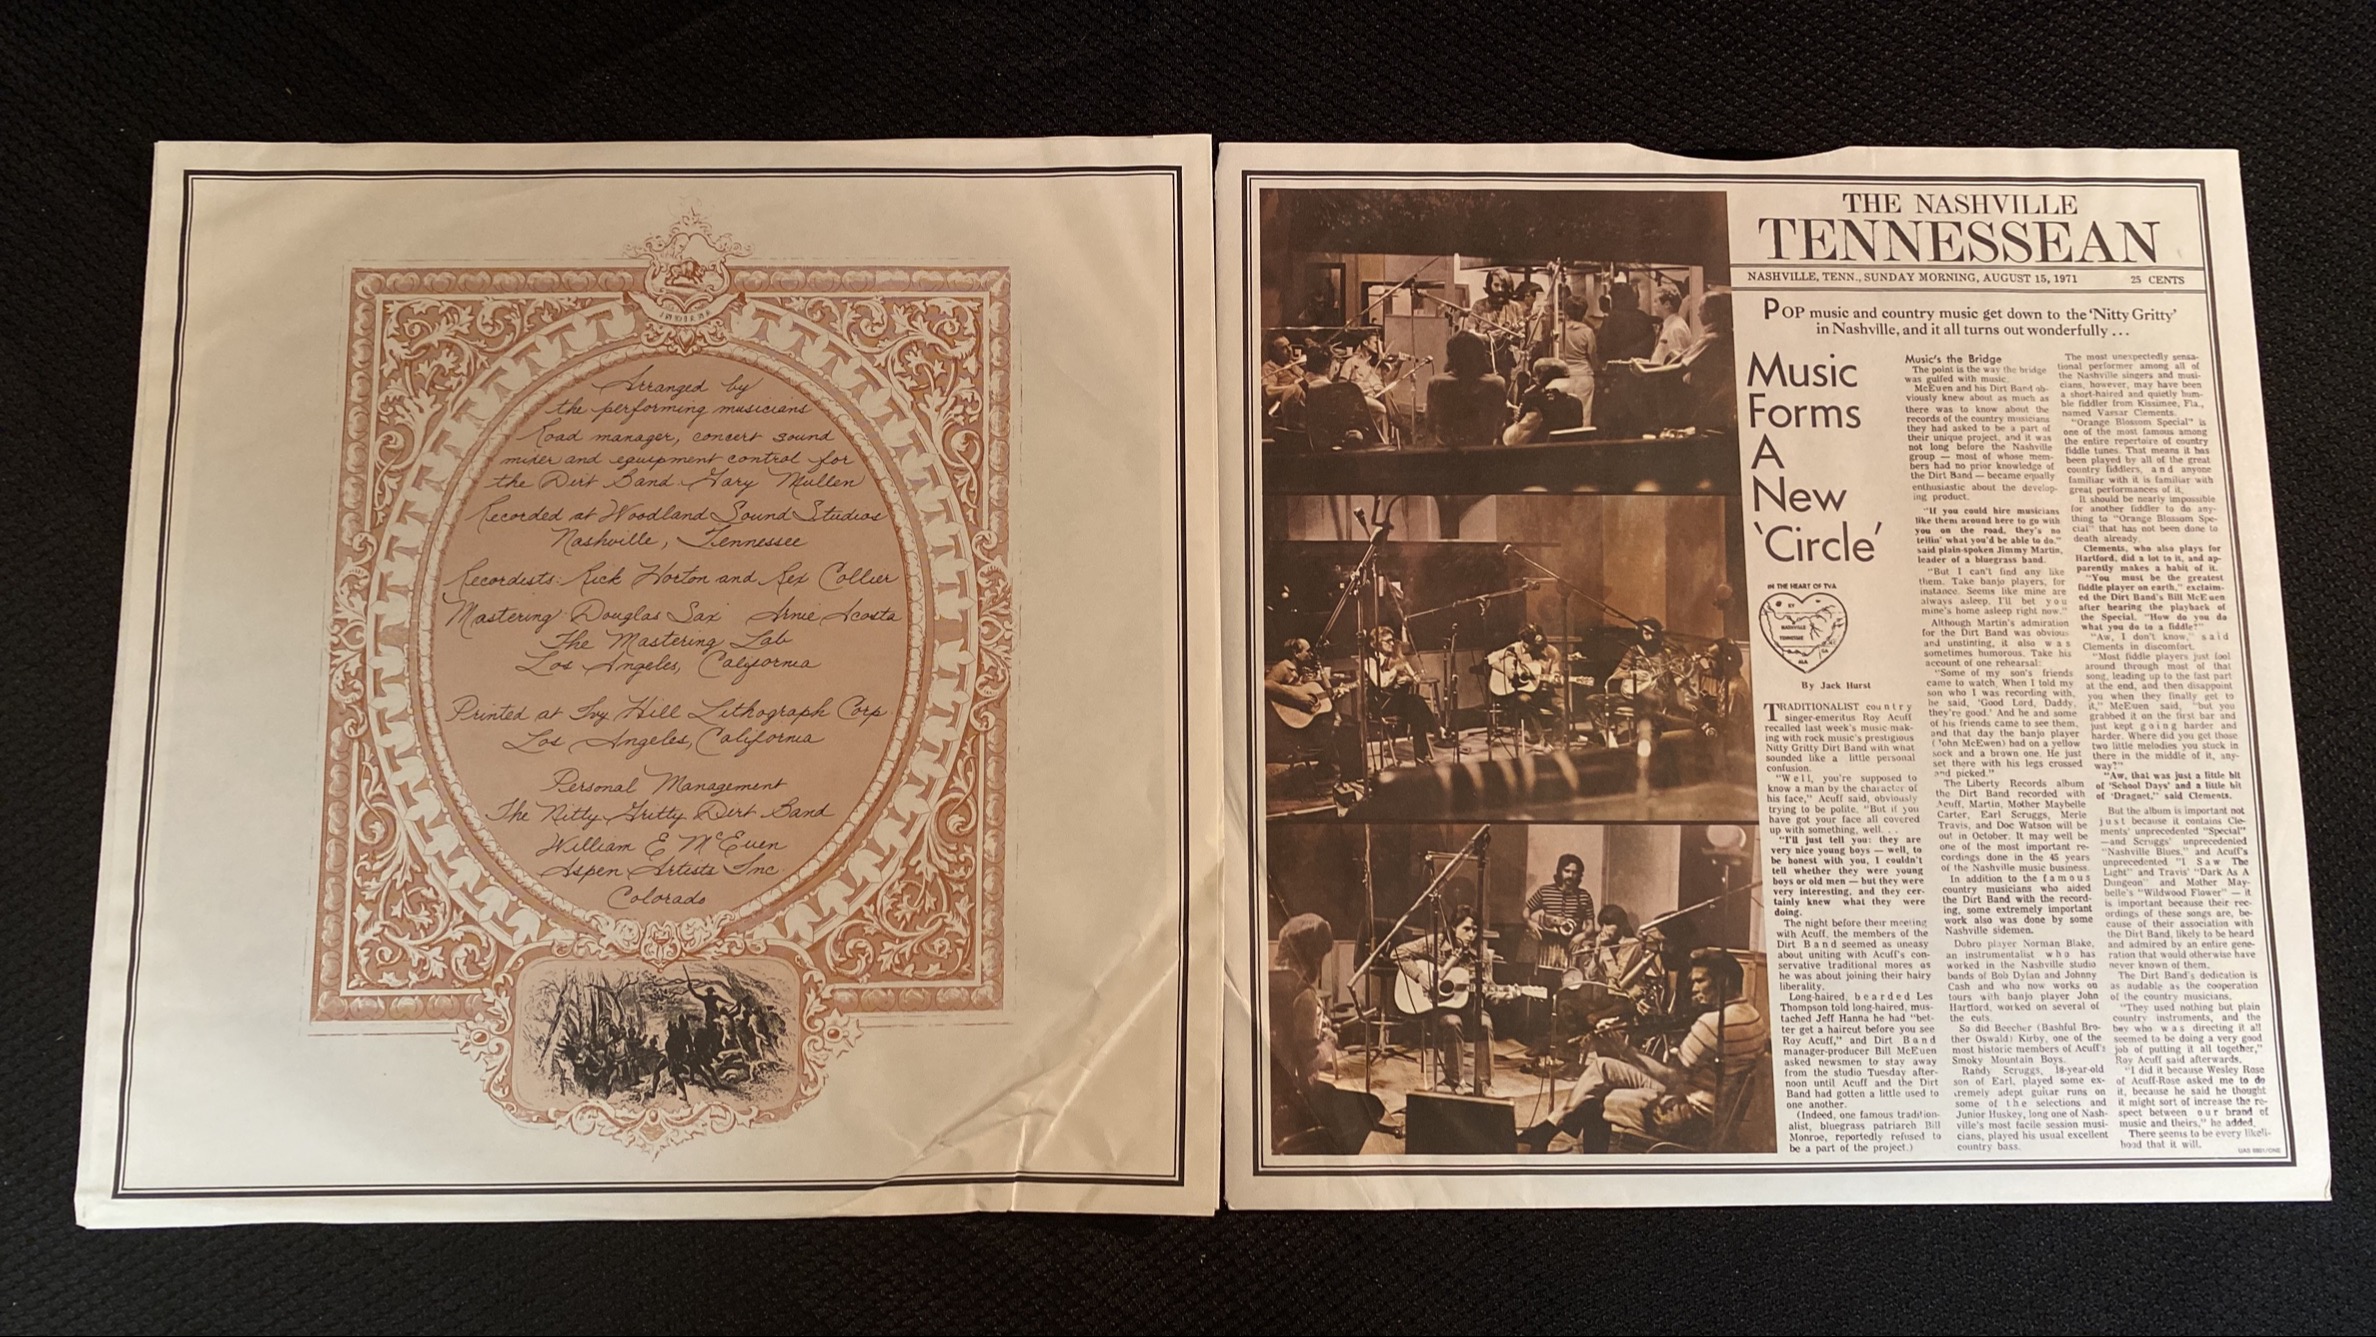 Arranged by
the performing musicians
Road manager, concert sound
mixer and equipment control for
the Dirt Band: Gary Mullen
Recorded at Woodland Sound Studios
Nashville, Tennessee
Recordists: Rick Horton and Rex Collier
Mastering: Douglas Sax Arnie Acosta
The Mastering Lab
Los Angeles, California
Printed at Ivy Hill Lithograph Corp.
Los Angeles, California
Personal Management
The Nitty Gritty Dirt Band
William E. McEuen
Aspen Artists Inc
Colorado
THE NASHVILLE
TENNESSEAN
NASHVILLE, TENN., SUNDAY MORNING, AUGUST 15, 1971 25 CENTS
POP music and country music get down to the 'Nitty Gritty'
in Nashville, and it all turns out wonderfully ...
Music
Forms
A
New
'Circle'
IN THE HEART OF TVA
KY
NASHVILLE
TENNESSEE
ALA
GA
By Jack Hurst
TRADITIONALIST country
singer-emeritus Roy Acuff
recalled last week's music-mak-
ing with rock music's prestigious
Nitty Gritty Dirt Band with what
sounded like a little personal
confusion.
"Well, you're supposed to
know a man by the character of
his face," Acuff said, obviously
trying to be polite. "But if you
have got your face all covered
up with something, well. . .
"I'll just tell you: they are
very nice young boys — well, to
be honest with you, I couldn't
tell whether they were young
boys or old men — but they were
very interesting, and they cer-
tainly knew what they were
doing.
The night before their meeting
with Acuff, the members of the
Dirt Band seemed as uneasy
about uniting with Acuff's con-
servative traditional mores as
he was about joining their hairy
liberality.
Long-haired, bearded Les
Thompson told long-haired, mus-
tached Jeff Hanna he had "bet-
ter get a haircut before you see
Roy Acuff," and Dirt Band
manager-producer Bill McEuen
asked newsmen to stay away
from the studio Tuesday after-
noon until Acuff and the Dirt
Band had gotten a little used to
one another.
(Indeed, one famous tradition-
alist, bluegrass patriarch Bill
Monroe, reportedly refused to
be a part of the project.)
Music's the Bridge
The point is the way the bridge
was gulfed with music.
McEuen and his Dirt Band ob-
viously knew about as much as
there was to know about the
records of the country musicians
they had asked to be a part of
their unique project, and it was
not long before the Nashville
group — most of whose mem-
bers had no prior knowledge of
the Dirt Band — became equally
enthusiastic about the develop-
ing product.
"If you could hire musicians
like them around here to go with
you on the road, they's no
tellin' what you'd be able to do."
said plain-spoken Jimmy Martin,
leader of a bluegrass band.
"But I can't find any like
them. Take banjo players, for
instance. Seems like mine are
always asleep, I'll bet you
mine's home asleep right now."
Although Martin's admiration
for the Dirt Band was obvious
and unstinting, it also was
sometimes humorous. Take his
account of one rehearsal:
"Some of my son's friends
came to watch. When I told my
son who I was recording with,
he said, 'Good Lord, Daddy,
they're good.' And he and some
of his friends came to see them,
and that day the banjo player
(John McEwen) had on a yellow
sock and a brown one. He just
set there with his legs crossed
and picked."
The Liberty Records album
the Dirt Band recorded with
Acuff, Martin, Mother Maybelle
Carter, Earl Scruggs, Merle
Travis, and Doc Watson will be
out in October. It may well be
one of the most important re-
cordings done in the 45 years
of the Nashville music business.
In addition to the famous
country musicians who aided
the Dirt Band with the record-
ing, some extremely important
work also was done by some
Nashville sidemen.
Dobro player Norman Blake,
an instrumentalist who has
worked in the Nashville studio
bands of Bob Dylan and Johnny
Cash and who now works on
tours with banjo player John
Hartford, worked on several of
the cuts.
So did Beecher (Bashful Bro-
ther Oswald) Kirby, one of the
most historic members of Acuff's
Smoky Mountain Boys.
Randy Scruggs, 18-year-old
son of Earl, played some ex-
tremely adept guitar runs on
some of the selections and
Junior Huskey, long one of Nash-
ville's most facile session musi-
cians, played his usual excellent
country bass.
The most unexpectedly sensa-
tional performer among all of
the Nashville singers and musi-
cians, however, may have been
a short-haired and quietly hum-
ble fiddler from Kissimee, Fla.,
named Vassar Clements.
"Orange Blossom Special" is
one of the most famous among
the entire repertoire of country
fiddle tunes. That means it has
been played by all of the great
country fiddlers, and anyone
familiar with it is familiar with
great performances of it.
It should be nearly impossible
for another fiddler to do any-
thing to "Orange Blossom Spe-
cial" that has not been done to
death already.
Clements, who also plays for
Hartford, did a lot to it, and ap-
parently makes a habit of it.
"You must be the greatest
fiddle player on earth," exclaim-
ed the Dirt Band's Bill McEuen
after hearing the playback of
the Special. "How do you do
what you do to a fiddle?"
"Aw, I don't know," said
Clements in discomfort.
"Most fiddle players just fool
around through most of that
song, leading up to the fast part
at the end, and then disappoint
you when they finally get to
it," McEuen said, "but you
grabbed it on the first bar and
just kept going harder and
harder. Where did you get those
two little melodies you stuck in
there in the middle of it, any-
way?"
"Aw, that was just a little bit
of 'School Days' and a little bit
of 'Dragnet,'" said Clements.
But the album is important not
just because it contains Cle-
ments' unprecedented "Special"
—and Scruggs' unprecedented
"Nashville Blues," and Acuff's
unprecedented "I Saw The
Light" and Travis' "Dark As A
Dungeon" and Mother May-
belle's "Wildwood Flower" — it
is important because their rec-
ordings of these songs are, be-
cause of their association with
the Dirt Band, likely to be heard
and admired by an entire gene-
ration that would otherwise have
never known of them.
The Dirt Band's dedication is
as audable as the cooperation
of the country musicians.
"They used nothing but plain
country instruments, and the
boy who was directing it all
seemed to be doing a very good
job of putting it all together,"
Roy Acuff said afterwards.
"I did it because Wesley Rose
of Acuff-Rose asked me to do
it, because he said he thought
it might sort of increase the re-
spect between our brand of
music and theirs," he added.
There seems to be every likeli-
hood that it will.